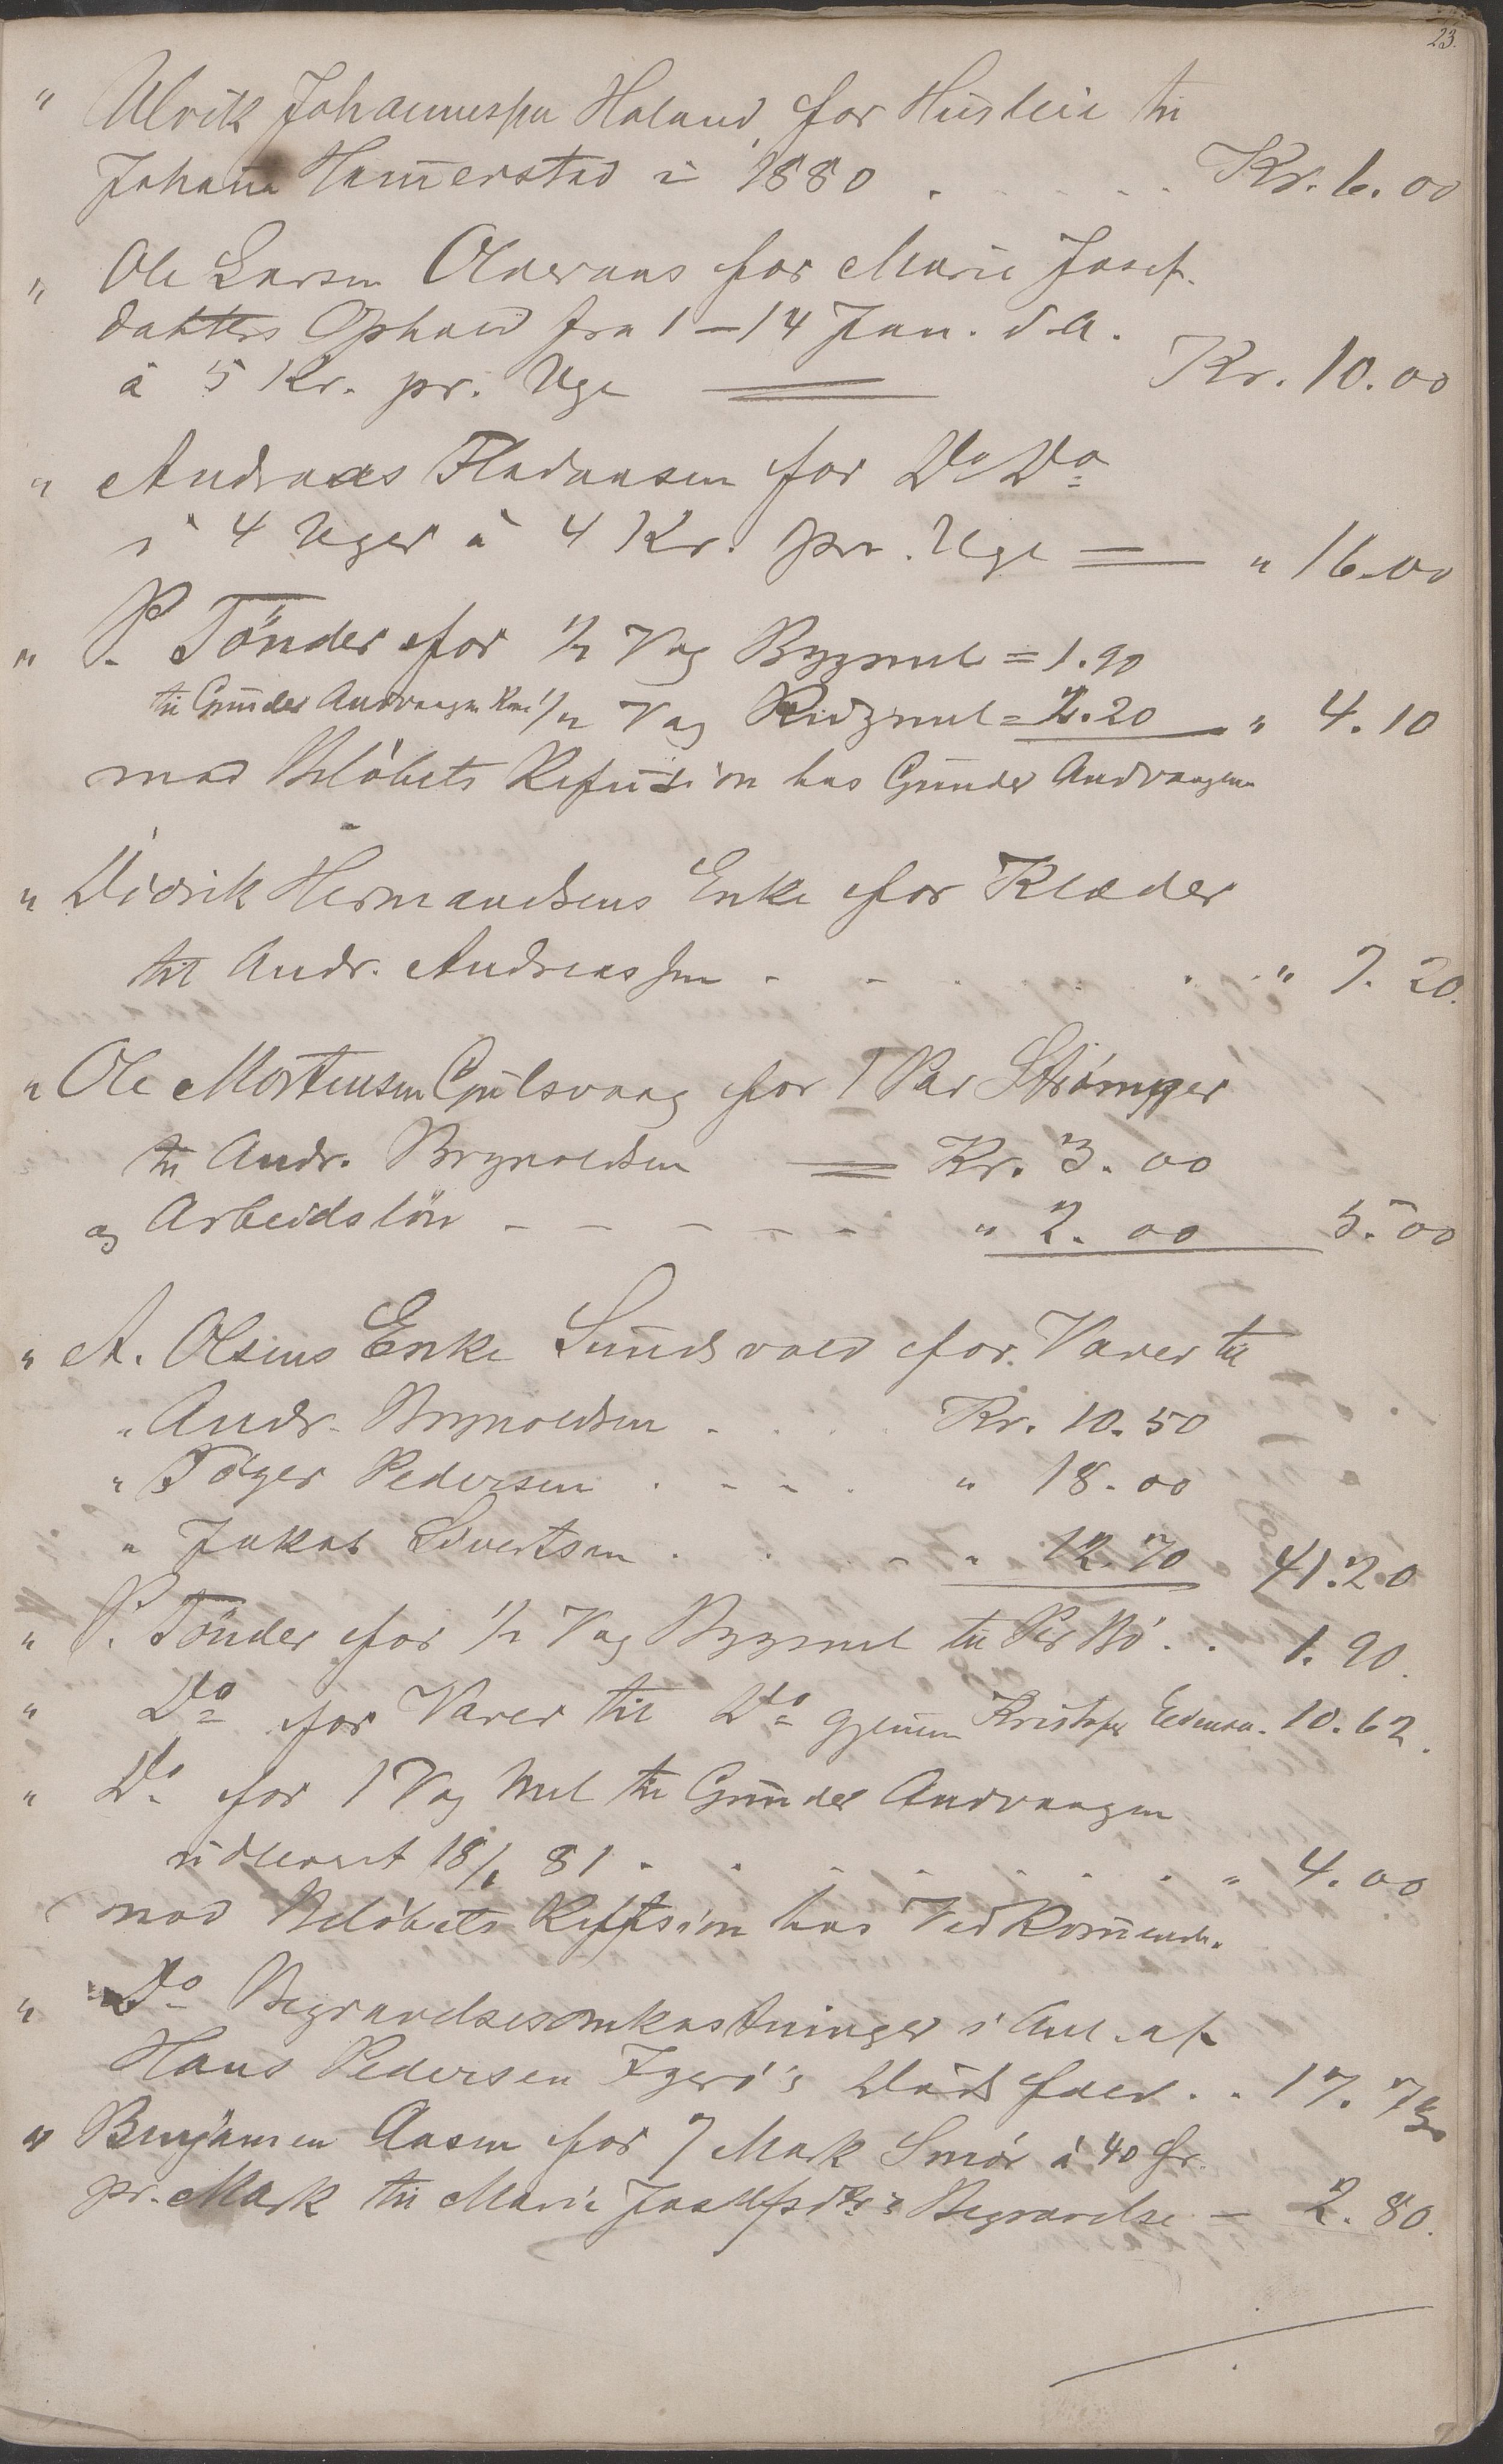 23.
" Ulrik Johannessen Haland for Husleie til
Johan Hammerstad i 1880 . . . . . Kr. 6.00
" Ole Larsen Olderaas for Marie Josef-
datters Ophold fra 1–14 Jan. d.A.
à 5 Kr. pr. Uge = Kr. 10.00
" Andreas Fladaasen for Do Do
i 4 Uger à 4 Kr. pr. Uge = " 16.00
" P. Tönder for 1/2 Vog Bygmel = 1.90
til Gunder Andvaagen 1/2 Vog Rugmel = 2.20 " 4.10
mod Belöbets Refusion hos Gunder Andvaagen
" Didrik Hermandsens Enke for Klæder
til Andr. Andreassen - - . . . . " 7.20.
" Ole Mortensen Gulsvaag for 1 Par Strömper
til Andr. Brynoldsen = Kr. 3.00
og Arbeidslön - - - - - " 2.00 5.00
" A. Olsens Enke Sundsvold for Varer til
" Andr. Brynoldsen . . . . Kr. 10.50
" Töger Pedersen . - - . " 18.00
" Jakob Sivertsen . . . - " 12.70 41.20
" P. Tönder for 1/2 Vog Bygmel til Per Bö . . 1.90.
" Do for Varer til Do gjennem Kristofer 10.62.
" Do for 1 Vog Mel til Gunder Andvaagen
udleveret 18/1 81 . . . . . . . " 4.00
mod Belöbets Reftsion hos Vedkommende.
" Do Begravelsesomkostninger i Anl. af
Hans Pedersen Igerö's Dödsfald . . 17.73
" Benjamin Aasen for 7 Mark Smör à 40 Ør.
pr. Mark til Marie Josefsdtr's Begravelse – 2.80.